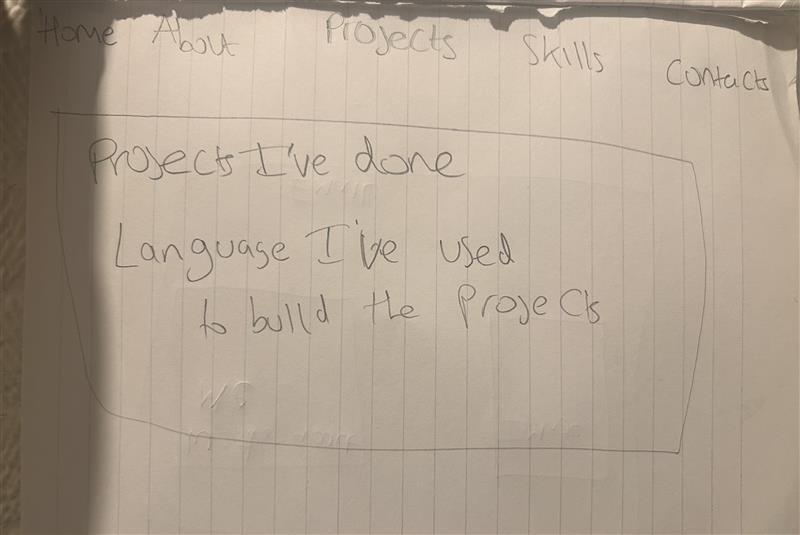 Home About Projects Skills Contacts
Projects I've done
Language I've used
to build the Projects